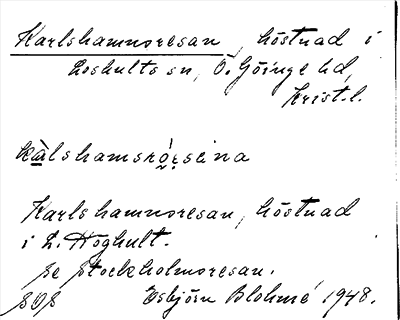 Karlshamnsresan, höstnad i
Loshults sn, Ö. Göinge hd,
Krist. l.
Karlshamnsresan, höstnad
i L. Höghult.
se Stockholmsresan.
SOS Esbjörn Blohmé 1948.